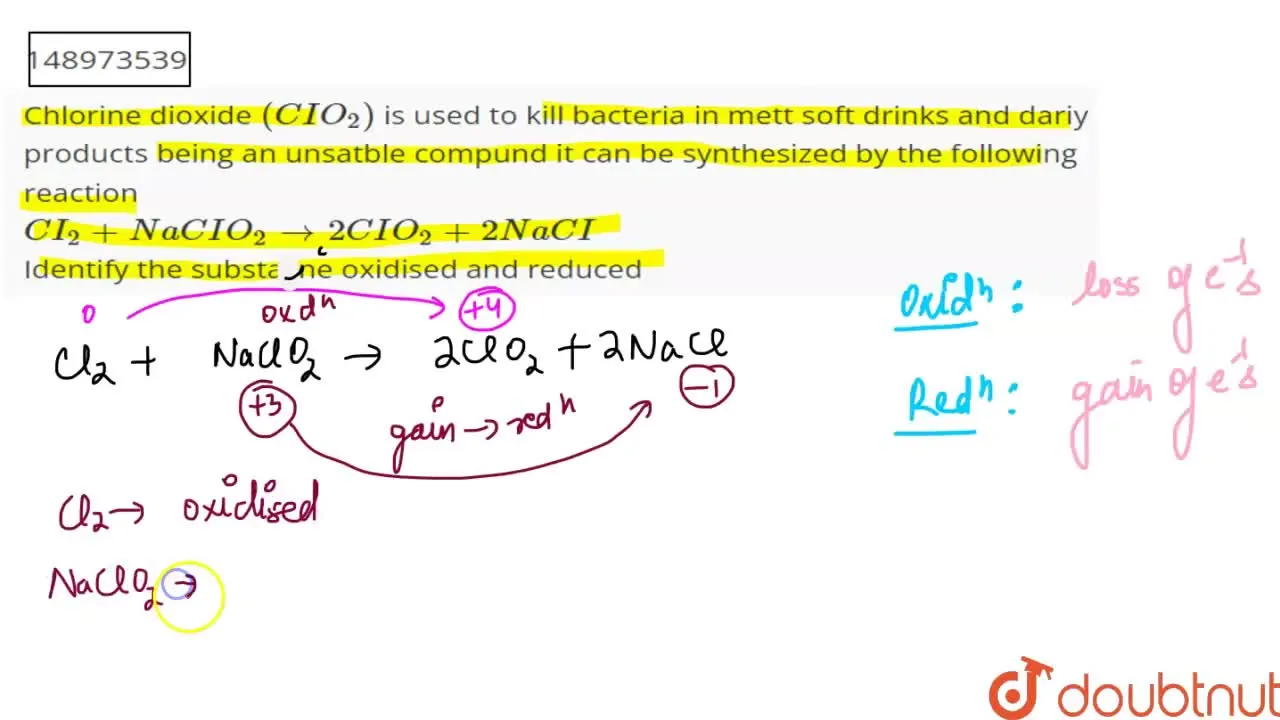 148973539
Chlorine dioxide (CIO₂) is used to kill bacteria in mett soft drinks and dariy
products being an unsatble compund it can be synthesized by the following
reaction
CI₂ + NaCIO₂ → 2CIO₂ + 2NaCI
Identify the substa ne oxidised and reduced
0 oxdⁿ +4
Cl₂ + NaClO₂ → 2ClO₂ + 2NaCl
+3 -1
gain → redⁿ
Cl₂ → oxidised
NaClO₂ →
Oxidⁿ : loss of e⁻¹s
Redⁿ : gain of e⁻¹s
doubtnut